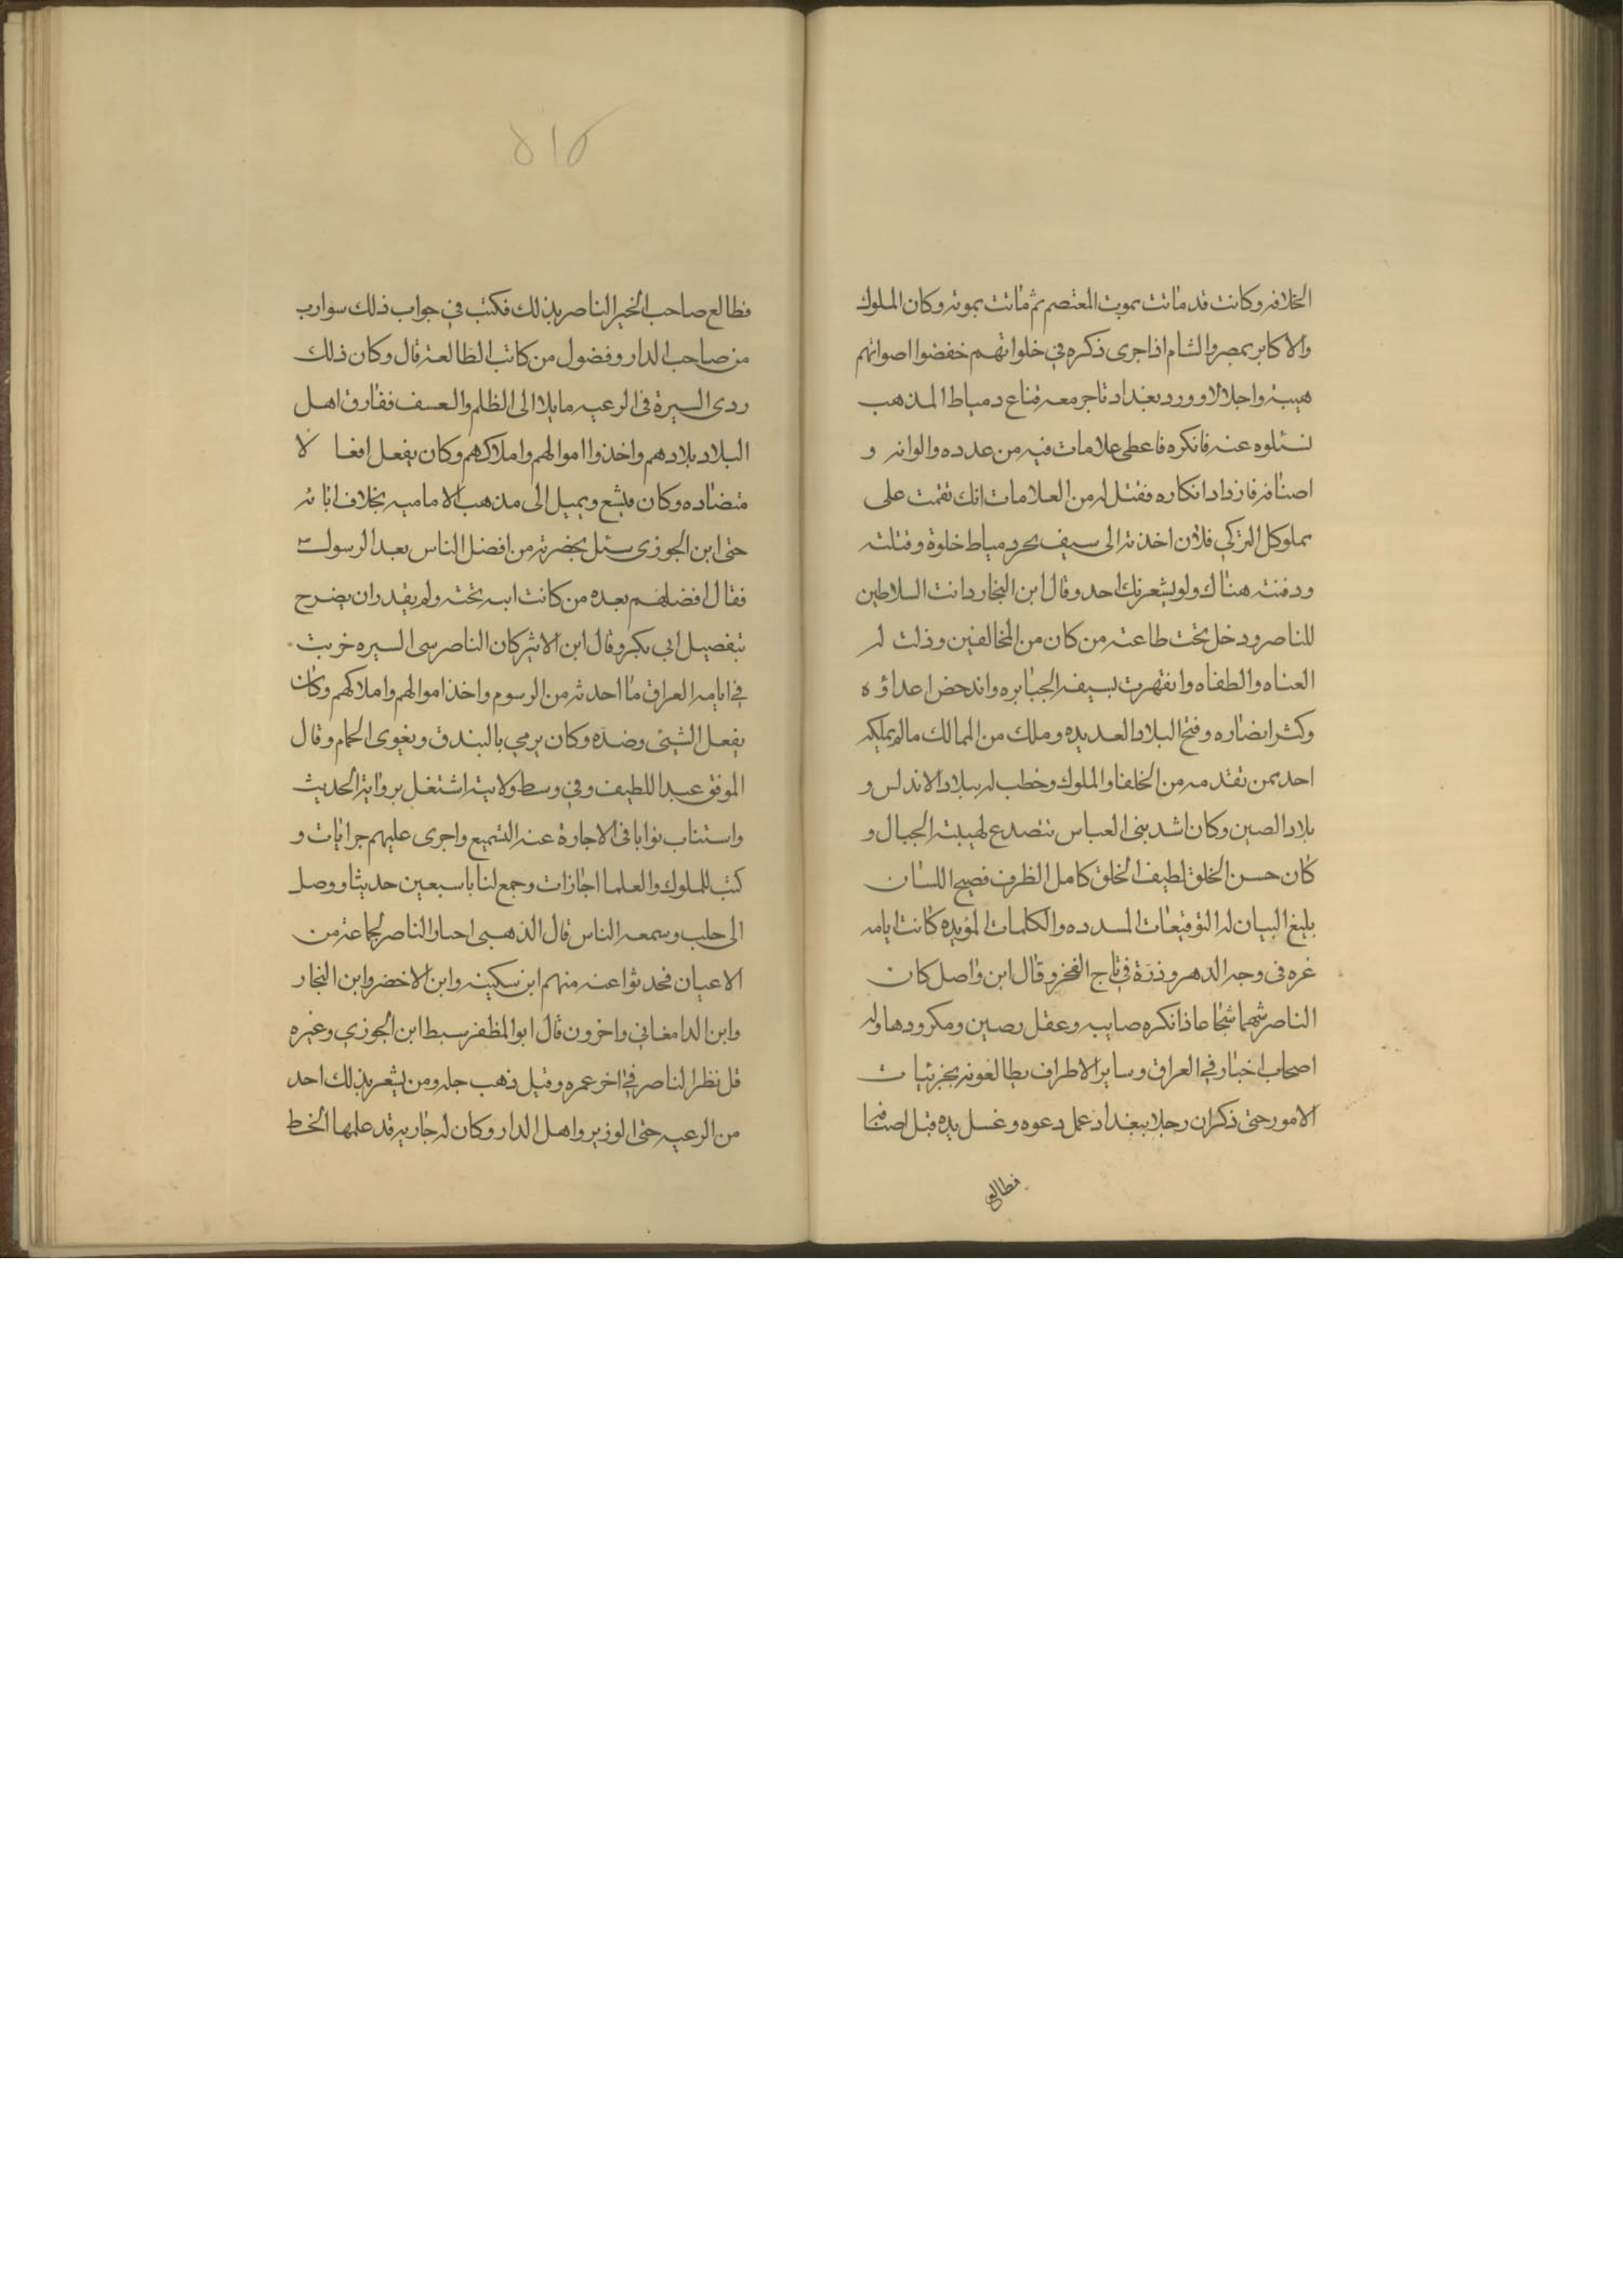 الخلافه وكانت قد ماتت بموت المعتصم ثم ماتت بموته وكان الملوك
والاكابر بمصر والشام اذا جرى ذكره في خلواتهم خفضوا اصواتهم
هيبة واجلالا وورد بغداد تاجر معه متاع دمياط المذهب
فسئلوه عنه فانكره فاعطى علامات فيه من عدده والوانه و
اصنافه فازداد انكاره فقتل له من العلامات انك نقمت على
مملوكك التركي فلان اخذته الى سيف بحر دمياط خلوة وقتلته
ودفنته هناك ولو يشعر بك احد وقال ابن النجار دانت السلاطين
للناصر ودخل تحت طاعته من كان من المخالفين وذلت له
العتاه والطغاه وانقهرت بسيفه الجبابره واندحض اعداؤه
وكثر انصاره وفتح البلاد العديده وملك من الممالك مالم يملكه
احد ممن تقدمه من الخلفا والملوك وخطب له ببلاد الاندلس و
بلاد الصين وكان اشد بنى العباس تتصدع لهيبته الجبال و
كان حسن الخلق لطيف الخلق كامل الظرف فصيح اللسان
بليغ البيان له التوقيعات المسدده والكلمات المؤيده كانت ايامه
غره فى وجه الدهر وذرة في تاج الفخر وقال ابن واصل كان
الناصر شهما شجاعا ذا نكره صايبه وعقل رصين ومكر ودها وله
اصحاب اخبار في العراق وساير الاطراف يطالعونه بجزئيات
الامور حتى ذكر ان رجلا ببغداد عمل دعوه وغسل يده قبل اضيافه
فطالع
فطالع صاحب الخير الناصر بذلك فكتب في جواب ذلك سوارب
من صاحب الدار وفضول من كاتب الظالعة قال وكان ذلك
ردى السيرة فى الرعيه مايلا الى الظلم والعسف ففارق اهل
البلاد بلادهم واخذوا اموالهم واملاكهم وكان يفعل افعالا
متضاده وكان يتشع ويميل الى مذهب الاماميه بخلاف ابائه
حتى ابن الجوزى سئل بحضرته من افضل الناس بعد الرسول
فقال افضلهم بعده من كانت ابنه تحته ولم يقدر ان يصرح
بتفضيل ابي بكر وقال ابن الاثير كان الناصر سى السيره خربت
في ايامه العراق ما احدثه من الرسوم واخذ اموالهم واملاكهم وكان
يفعل الشيئ وضده وكان يرمي بالبندق ويغوى الحمام وقال
الموفق عبد اللطيف وفي وسط ولايته اشتغل برواية الحديث
واستناب نوابا فى الاجارة عنه التسميع واجرى عليهم جرايات و
كتب للملوك والعلما اجازات وجمع لنا با سبعين حديثا ووصل
الى حلب وسمعه الناس قال الذهبى اجاز الناصر لجماعة من
الاعيان فحدثوا عنه منهم ابن سكينه وابن الاخضر وابن النجار
وابن الدامغاني واخرون قال ابو المظفر سبط ابن الجوزي وغيره
قل نظر الناصر في اخر عمره وقيل ذهب جله ومن يشعر بذلك احد
من الرعيه حتى الوزير واهل الدار وكان له جاريه قد علمها الخط